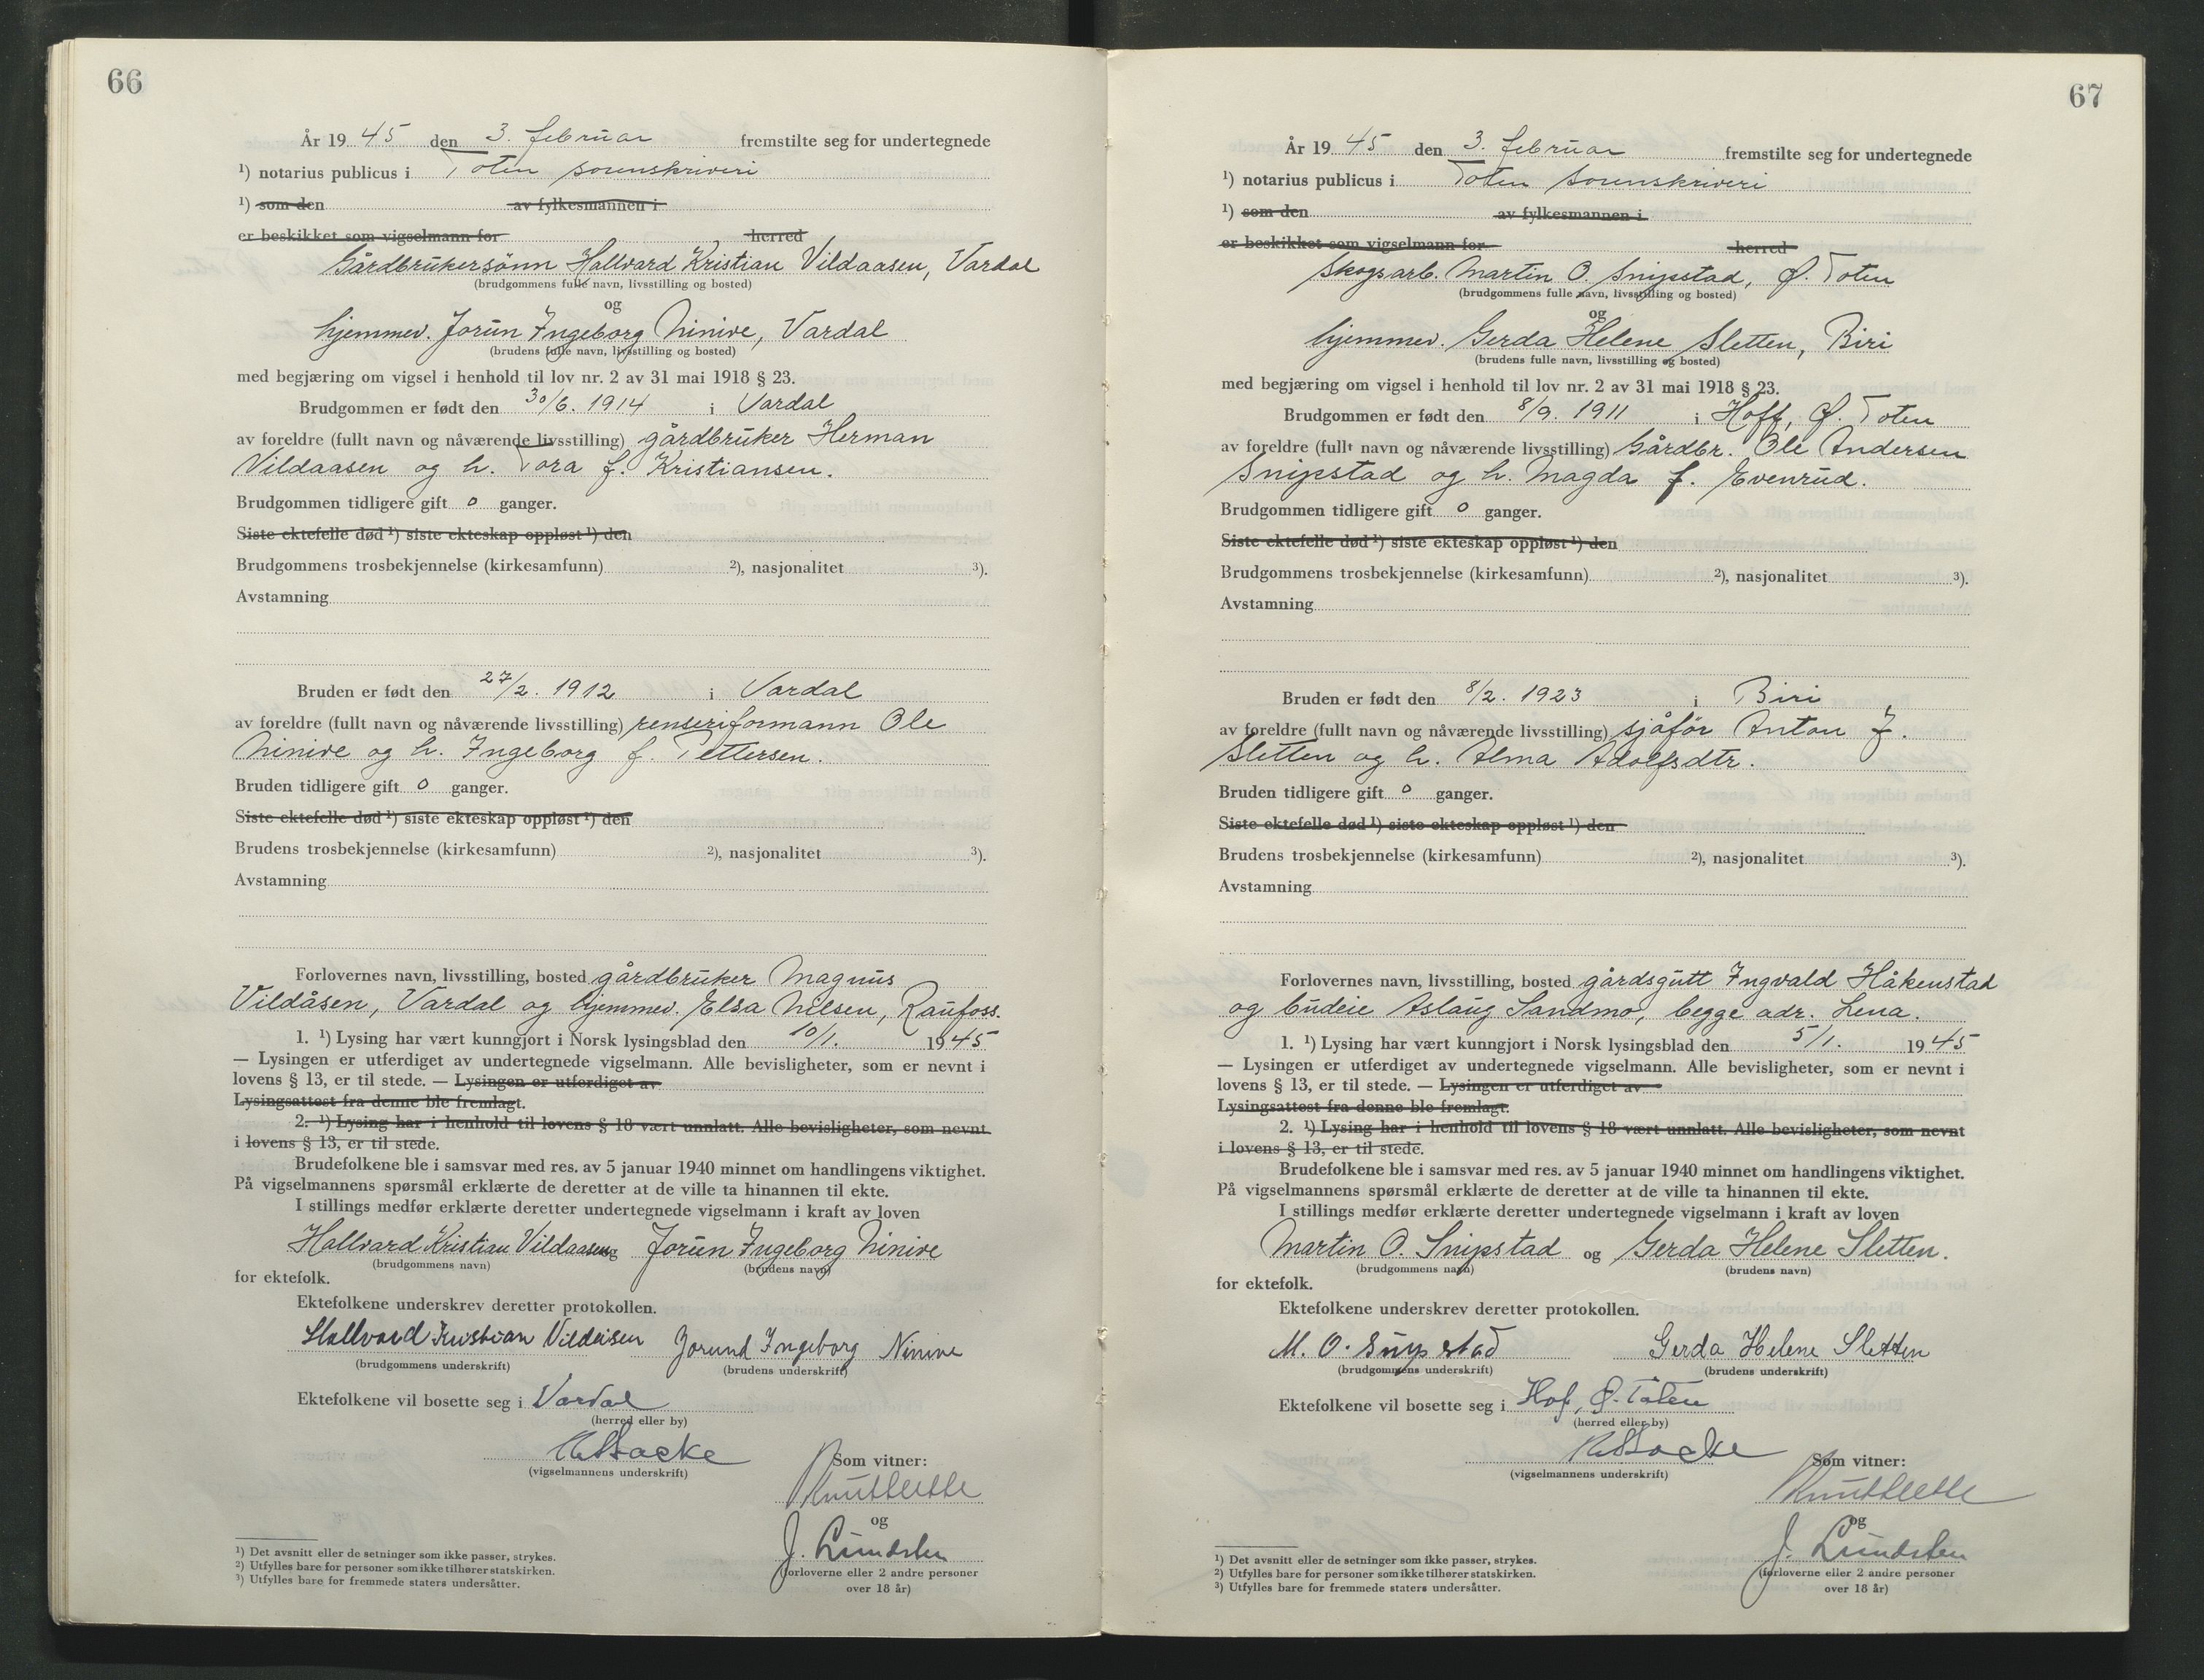 66
År 19 45 den 3. februar fremstilte seg for undertegnede
¹) notarius publicus i Toten sorenskriveri
¹) som den av fylkesmannen i
er beskikket som vigselmann for herred
Gårdbrukersønn Hallvard Kristian Vildaasen, Vardal
(brudgommens fulle navn, livsstilling og bosted)
og
hjemmev. Jorun Ingeborg Ninive, Vardal
(brudens fulle navn, livsstilling og bosted)
med begjæring om vigsel i henhold til lov nr. 2 av 31 mai 1918 § 23.
Brudgommen er født den 30/6. 1914 i Vardal
av foreldre (fullt navn og nåværende livsstilling) gårdbruker Herman
Vildaasen og h. Tora f. Kristiansen.
Brudgommen tidligere gift 0 ganger.
Siste ektefelle død ¹) siste ekteskap oppløst ¹) den
Brudgommens trosbekjennelse (kirkesamfunn) ²), nasjonalitet ³).
Avstamning
Bruden er født den 27/2. 1912 i Vardal
av foreldre (fullt navn og nåværende livsstilling) renseriformann Ole
Ninive og h. Ingeborg f. Pettersen.
Bruden tidligere gift 0 ganger.
Siste ektefelle død ¹) siste ekteskap oppløst ¹) den
Brudens trosbekjennelse (kirkesamfunn) ²), nasjonalitet ³).
Avstamning
Forlovernes navn, livsstilling, bosted gårdbruker Magnus
Vildåsen, Vardal og hjemmev. Elsa Nilsen, Raufoss.
1. ¹) Lysing har vært kunngjort i Norsk lysingsblad den 10/1. 1945
— Lysingen er utferdiget av undertegnede vigselmann. Alle bevisligheter, som er nevnt i
lovens § 13, er til stede. — Lysingen er utferdiget av
Lysingsattest fra denne ble fremlagt.
2. ¹) Lysing har i henhold til lovens § 18 vært unnlatt. Alle bevisligheter, som nevnt
i lovens § 13, er til stede.
Brudefolkene ble i samsvar med res. av 5 januar 1940 minnet om handlingens viktighet.
På vigselmannens spørsmål erklærte de deretter at de ville ta hinannen til ekte.
I stillings medfør erklærte deretter undertegnede vigselmann i kraft av loven
Hallvard Kristian Vildaasen og Jorun Ingeborg Ninive
(brudgommens navn) (brudens navn)
for ektefolk.
Ektefolkene underskrev deretter protokollen.
Hallvard Kristian Vildåsen Jorund Ingeborg Ninive
(brudgommens underskrift) (brudens underskrift)
Ektefolkene vil bosette seg i Vardal
(herred eller by)
(vigselmannens underskrift)
Som vitner:
og
J. Lundsten
(forloverne eller 2 andre personer
over 18 år)
¹) Det avsnitt eller de setninger som ikke passer, strykes.
²) Utfylles bare for personer som ikke tilhører statskirken.
³) Utfylles bare for fremmede staters undersåtter.
67
År 19 45 den 3. februar fremstilte seg for undertegnede
¹) notarius publicus i Toten sorenskriveri
¹) som den av fylkesmannen i
er beskikket som vigselmann for herred
Skogsarb. Martin O. Snipstad, Ø. Toten
(brudgommens fulle navn, livsstilling og bosted)
og
hjemmev. Gerda Helene Sletten, Biri
(brudens fulle navn, livsstilling og bosted)
med begjæring om vigsel i henhold til lov nr. 2 av 31 mai 1918 § 23.
Brudgommen er født den 8/9. 1911 i Hoff, Ø. Toten
av foreldre (fullt navn og nåværende livsstilling) Gårdbr. Ole Andersen
Snipstad og h. Magda f. Evenrud.
Brudgommen tidligere gift 0 ganger.
Siste ektefelle død ¹) siste ekteskap oppløst ¹) den
Brudgommens trosbekjennelse (kirkesamfunn) ²), nasjonalitet ³).
Avstamning
Bruden er født den 8/2. 1923 i Biri
av foreldre (fullt navn og nåværende livsstilling) sjåfør Anton J.
Sletten og h. Alma Adolfsdtr.
Bruden tidligere gift 0 ganger.
Siste ektefelle død ¹) siste ekteskap oppløst ¹) den
Brudens trosbekjennelse (kirkesamfunn) ²), nasjonalitet ³).
Avstamning
Forlovernes navn, livsstilling, bosted gårdsgutt Ingvald Håkenstad
og budeie Aslaug Sandmo, begge adr. Lena.
1. ¹) Lysing har vært kunngjort i Norsk lysingsblad den 5/1. 19 45
— Lysingen er utferdiget av undertegnede vigselmann. Alle bevisligheter, som er nevnt i
lovens § 13, er til stede. — Lysingen er utferdiget av
Lysingsattest fra denne ble fremlagt.
2. ¹) Lysing har i henhold til lovens § 18 vært unnlatt. Alle bevisligheter, som nevnt
i lovens § 13, er til stede.
Brudefolkene ble i samsvar med res. av 5 januar 1940 minnet om handlingens viktighet.
På vigselmannens spørsmål erklærte de deretter at de ville ta hinannen til ekte.
I stillings medfør erklærte deretter undertegnede vigselmann i kraft av loven
Martin O. Snipstad og Gerda Helene Sletten.
(brudgommens navn) (brudens navn)
for ektefolk.
Ektefolkene underskrev deretter protokollen.
M. O. Snipstad Gerda Helene Sletten
(brudgommens underskrift) (brudens underskrift)
Ektefolkene vil bosette seg i Hof, Ø. Toten
(herred eller by)
(vigselmannens underskrift)
Som vitner:
og
J. Lundsten
(forloverne eller 2 andre personer
over 18 år)
¹) Det avsnitt eller de setninger som ikke passer, strykes.
²) Utfylles bare for personer som ikke tilhører statskirken.
³) Utfylles bare for fremmede staters undersåtter.